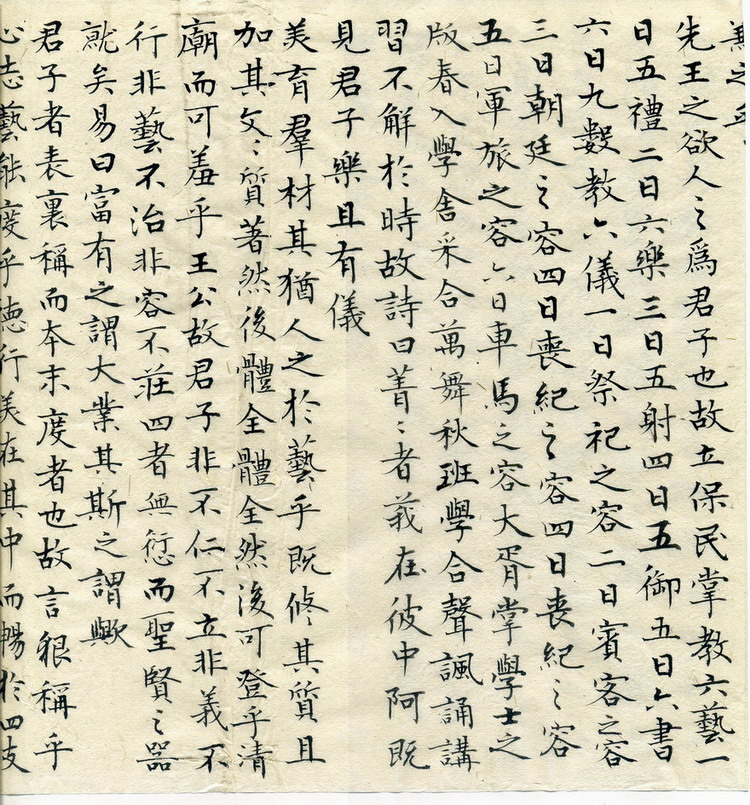 先王之欲人之爲君子也故立保民掌教六藝一
日五禮二日六樂三日五射四日五御五日六書
六日九數教六儀一日祭祀之容二日賓客之容
三日朝廷之容四日喪紀之容四日喪紀之容
五日軍旅之容六日車馬之容大胥掌學士之
版春入學舍采合萬舞秋班學合聲諷誦講
習不解於時故詩曰菁〻者莪在彼中阿既
見君子樂且有儀
美育羣材其猶人之於藝乎既脩其質且
加其文〻質著然後體全體全然後可登乎清
廟而可羞乎王公故君子非不仁不立非義不
行非藝不治非容不莊四者無愆而聖賢之器
就矣易曰富有之謂大業其斯之謂歟
君子者表裏稱而本末度者也故言貌稱乎
心志藝能度乎德行美在其中而暢於四支